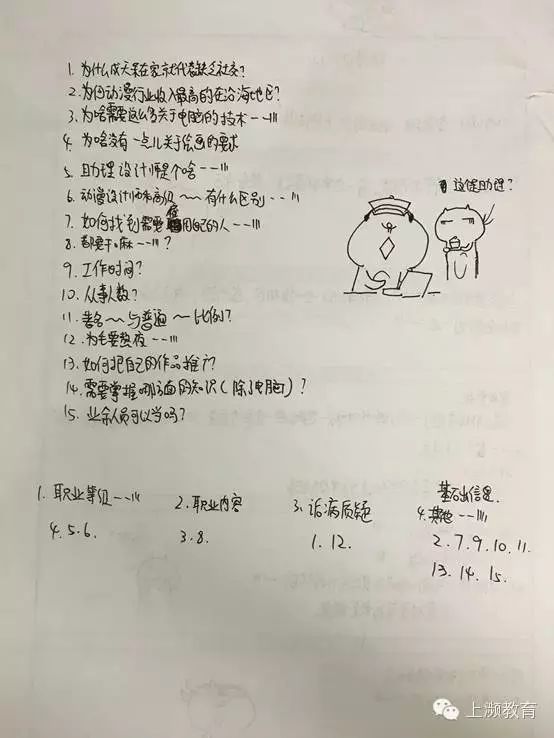 1. 为什么成天呆在家就代表缺乏社交?
2. 为何动漫行业收入最高的在沿海地区?
3. 为啥需要这么多关于电脑的技术--
4. 为啥没有一点儿关于绘画的要求
5. 助理设计师是个啥--
6. 动漫设计师和高级~有什么区别--
7. 如何找到需要雇用自己的人--
8. 都要干嘛--?
9. 工作时间?
10. 从事人数?
11. 著名~与普通~比例?
12. 为毛要熬夜--
13. 如何把自己的作品推广?
14. 需要掌握哪方面的知识(除了电脑)?
15. 业余人员可以学吗?
这是助理?
1. 职业等级--
4. 5. 6.
2. 职业内容
3. 8.
3. 诟病质疑
1. 12.
基础信息
4. 其他--
2. 7. 9. 10. 11.
13. 14. 15.
上濒教育